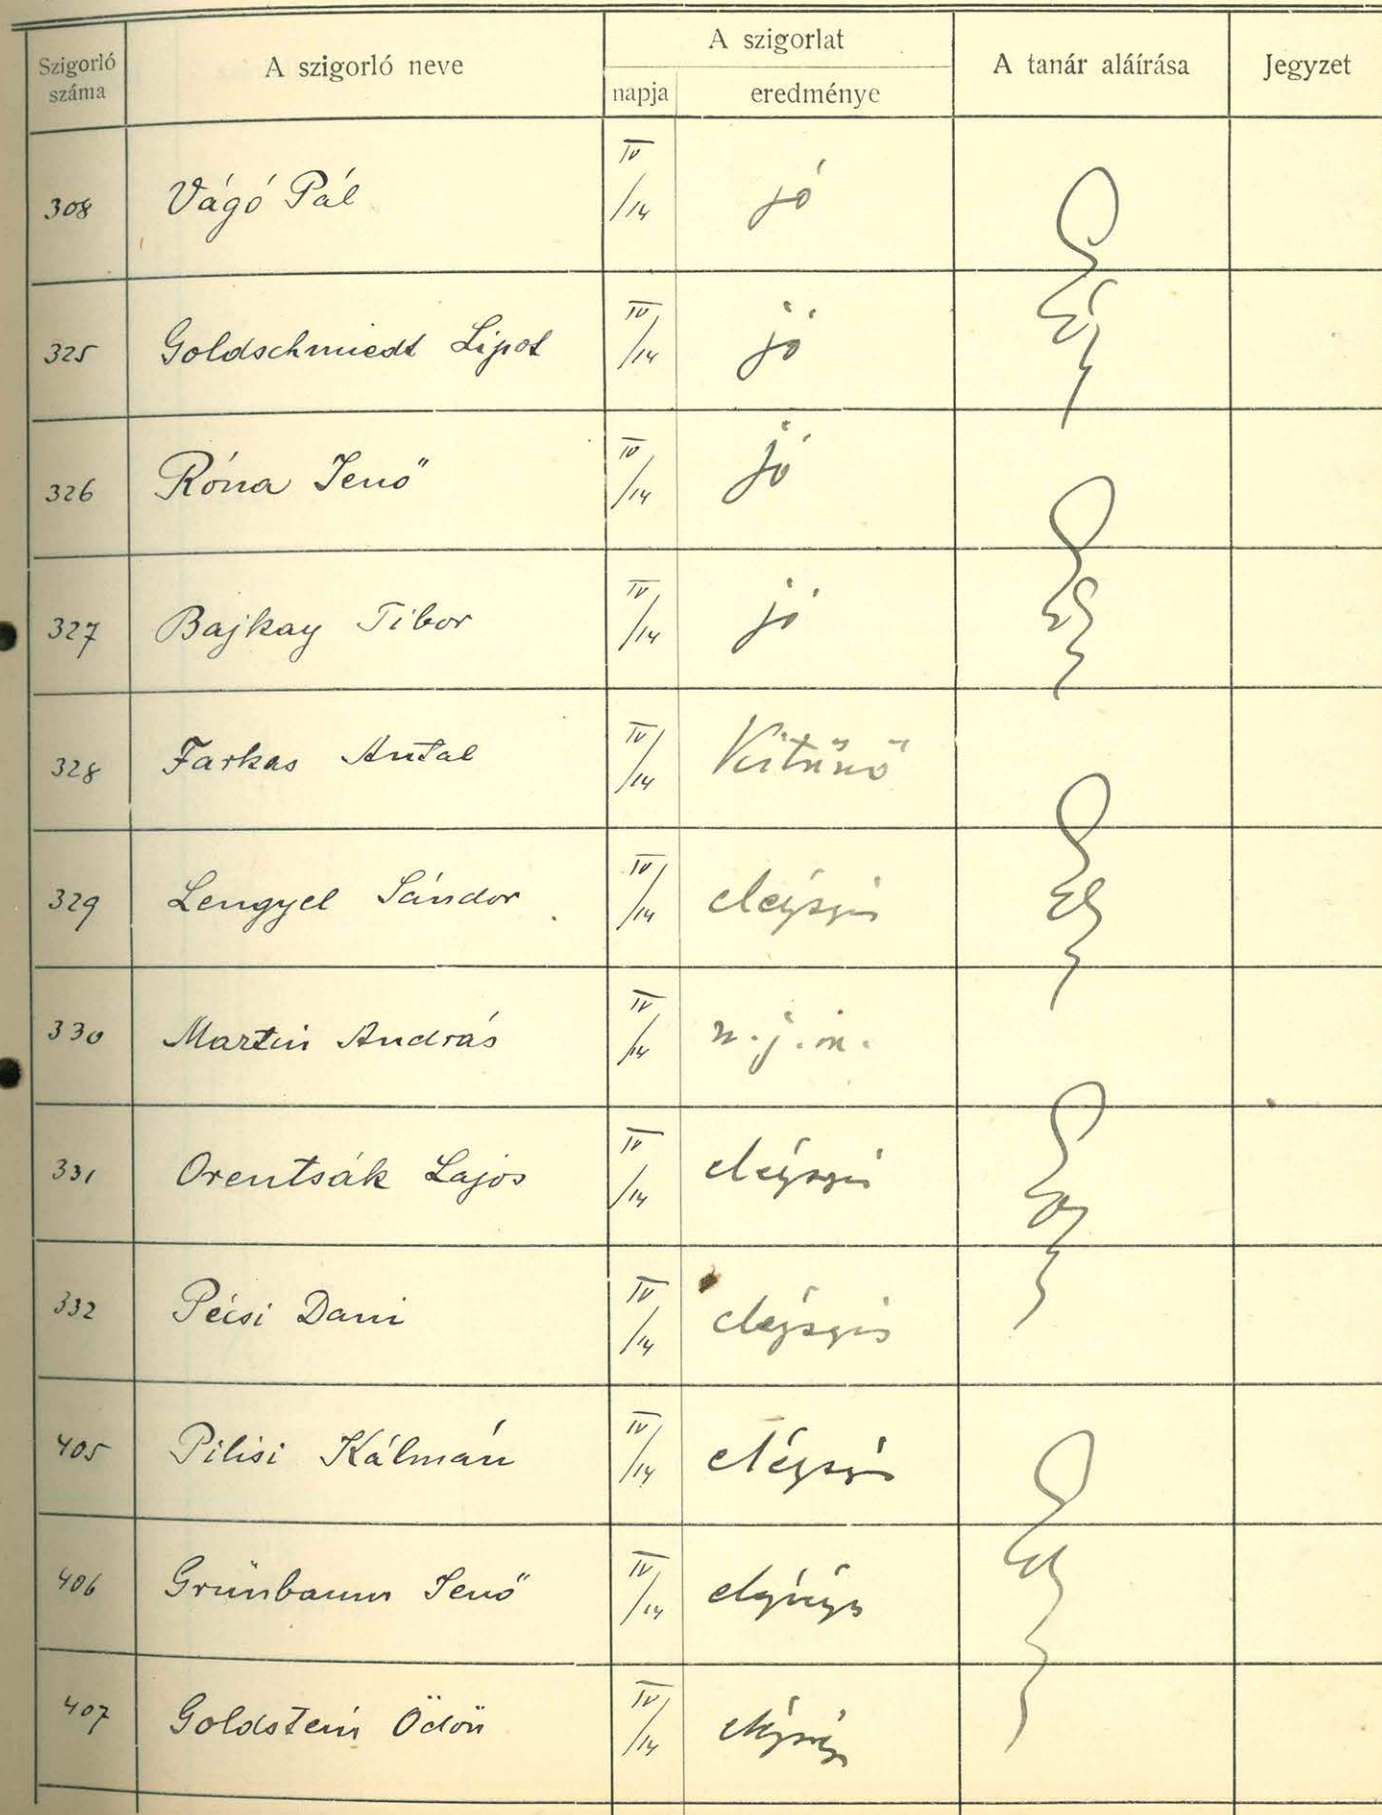 Szigorló száma | A szigorló neve | A szigorlat | A tanár aláírása | Jegyzet
napja | eredménye
308 | Vágó Pál | IV/14 | jó
325 | Goldschmiedt Lipót | IV/14 | jó
326 | Róna Jenő | IV/14 | jó
327 | Bajkay Tibor | IV/14 | jó
328 | Farkas Antal | IV/14 | Kitünő
329 | Lengyel Sándor | IV/14 | elégséges
330 | Martin András | IV/14 | n.j.m.
331 | Orentsák Lajos | IV/14 | elégséges
332 | Pécsi Dani | IV/14 | elégséges
405 | Pilisi Kálmán | IV/14 | elégséges
406 | Grünbaum Jenő | IV/14 | elégséges
407 | Goldstein Ödön | IV/14 | elégséges